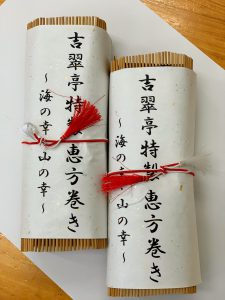 吉翠亭特製恵方巻き
～海の幸山の幸～
吉翠亭特製恵方巻き
～海の幸山の幸～